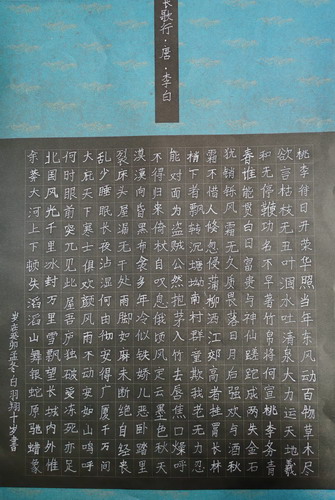 长歌行·唐·李白
桃李待日开荣华照当年东风动百物草木尽
欲言枯枝无丑叶涸水吐清泉大力运天地羲
和无停鞭功名不早著竹帛将何宣桃李务青
春谁能贳白日富贵与神仙蹉跎成两失金石
犹销铄风霜无久质畏落日月后强欢与酒秋
霜不惜人倏忽侵蒲柳洒江郊高者挂罥长林
梢下者飘转沉塘坳南村群童欺我老无力忍
能对面为盗贼公然抱茅入竹去唇焦口燥呼
不得归来倚杖自叹息俄顷风定云墨色秋天
漠漠向昏黑布衾多年冷似铁娇儿恶卧踏里
裂床头屋漏无干处雨脚如麻未断绝自经丧
乱少睡眠长夜沾湿何由彻安得广厦千万间
大庇天下寒士俱欢颜风雨不动安如山呜呼
何时眼前突兀见此屋吾庐独破受冻死亦足
北国风光千里冰封万里雪飘望长城内外惟
余莽大河上下顿失滔滔山舞银蛇原驰蜡象
岁在癸卯孟冬白羽翔十岁书